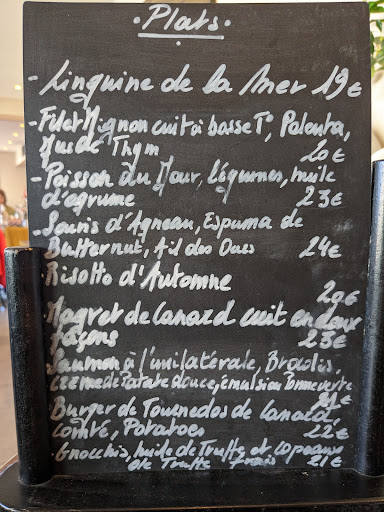 . Plats .
- Linguine de la Mer 19€
- Filet Mignon cuit à basse T°, Polenta,
Jus de Thym 20€
- Poisson du Jour, légumes, huile
d'agrume 23€
- Souris d'Agneau, Espuma de
Butternut, Ail des Ours 24€
. Risotto d'Automne
20€
. Magret de Canard cuit en deux
façons 23€
. Saumon à l'unilatérale, Brocolis,
Crème de Patate douce, émulsion Pomme verte
21€
. Burger de Tournedos de Canard
Comté, Potatoes 22€
. Gnocchis, huile de Truffe et copeaux
de Truffe frais 21€